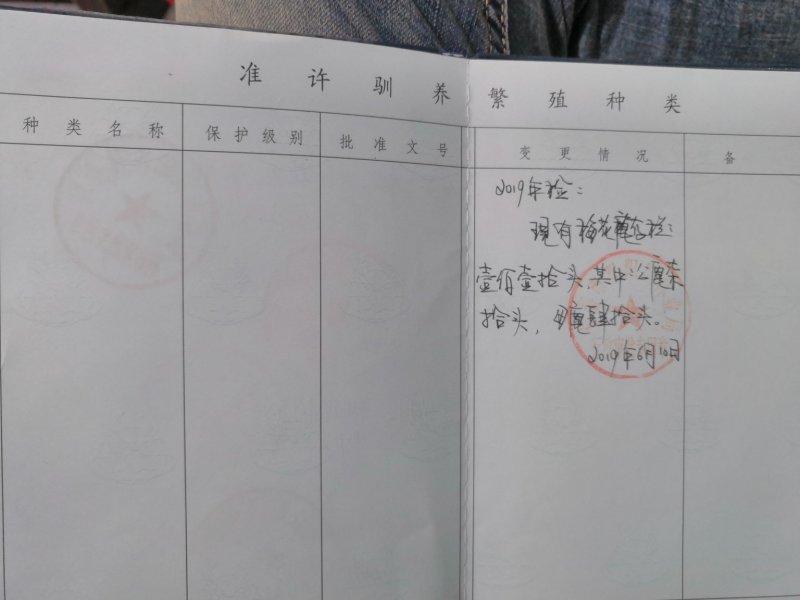 准许驯养繁殖种类
种类名称 保护级别 批准文号 变更情况 备
2019年检：
现有梅花鹿存栏：
壹佰壹拾头,其中:公鹿柒
拾头，母鹿肆拾头。
2019年6月10日